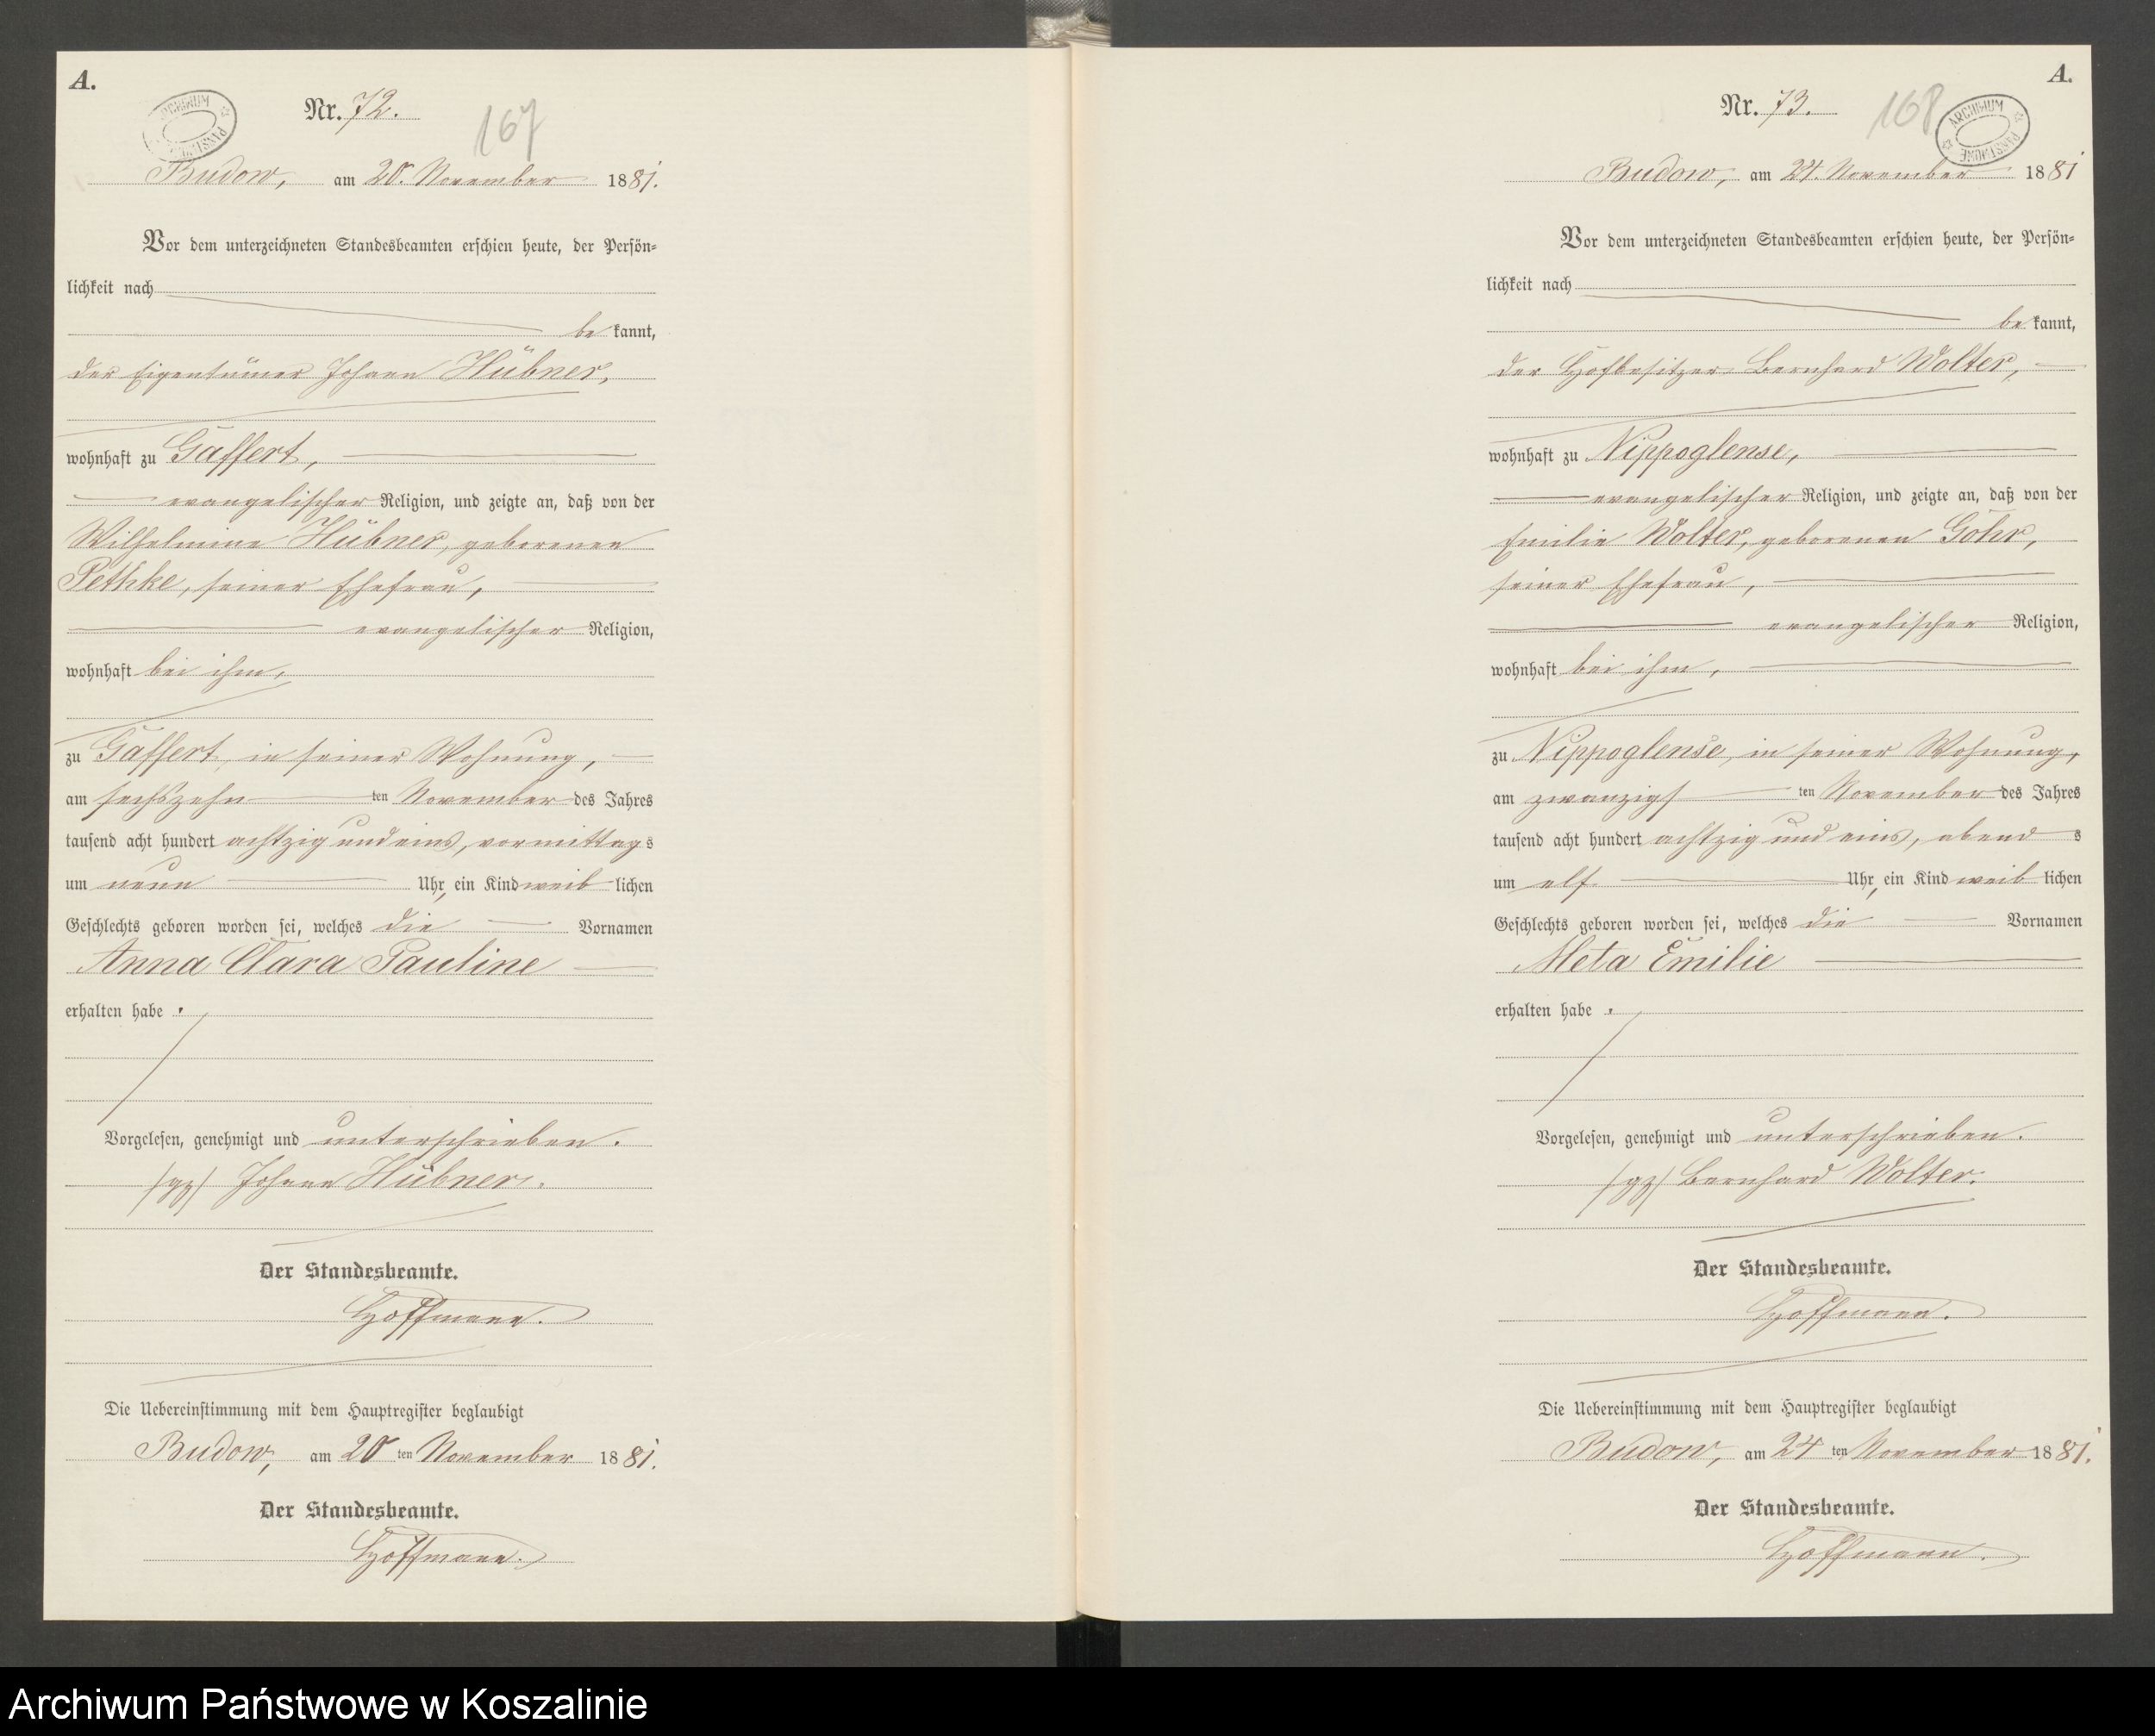 A.
Nr. 72.
167
ARCHIWUM PAŃSTWOWE
Budow, am 20. November 1881.
Vor dem unterzeichneten Standesbeamten erschien heute, der Persön-
lichkeit nach
be kannt,
der Eigentümer Johann Hübner,
wohnhaft zu Gaffert,
evangelischer Religion, und zeigte an, daß von der
Wilhelmine Hübner, geborenen
Pethke, seiner Ehefrau,
evangelischer Religion,
wohnhaft bei ihm,
zu Gaffert, in seiner Wohnung,
am sechszehn ten November des Jahres
tausend acht hundert achtzig und eins, vormittag s
um neun Uhr, ein Kind weib lichen
Geschlechts geboren worden sei, welches die Vornamen
Anna Clara Pauline
erhalten habe .
Vorgelesen, genehmigt und unterschrieben.
/gz/ Johann Hübner.
Der Standesbeamte.
Hoffmann.
Die Uebereinstimmung mit dem Hauptregister beglaubigt
Budow, am 20 ten November 1881.
Der Standesbeamte.
Hoffmann.
A.
Nr. 73.
168
ARCHIWUM PAŃSTWOWE
Budow, am 24. November 1881
Vor dem unterzeichneten Standesbeamten erschien heute, der Persön-
lichkeit nach
be kannt,
der Hofbesitzer Bernhard Wolter,
wohnhaft zu Nippoglense,
evangelischer Religion, und zeigte an, daß von der
Emilie Wolter, geborenen Gohr,
seiner Ehefrau,
evangelischer Religion,
wohnhaft bei ihm,
zu Nippoglense, in seiner Wohnung,
am zwanzigs ten November des Jahres
tausend acht hundert achtzig und eins, abend s
um elf Uhr, ein Kind weib lichen
Geschlechts geboren worden sei, welches die Vornamen
Meta Emilie
erhalten habe .
Vorgelesen, genehmigt und unterschrieben.
/gz/ Bernhard Wolter.
Der Standesbeamte.
Hoffmann.
Die Uebereinstimmung mit dem Hauptregister beglaubigt
Budow, am 24 ten November 1881.
Der Standesbeamte.
Hoffmann.
Archiwum Państwowe w Koszalinie